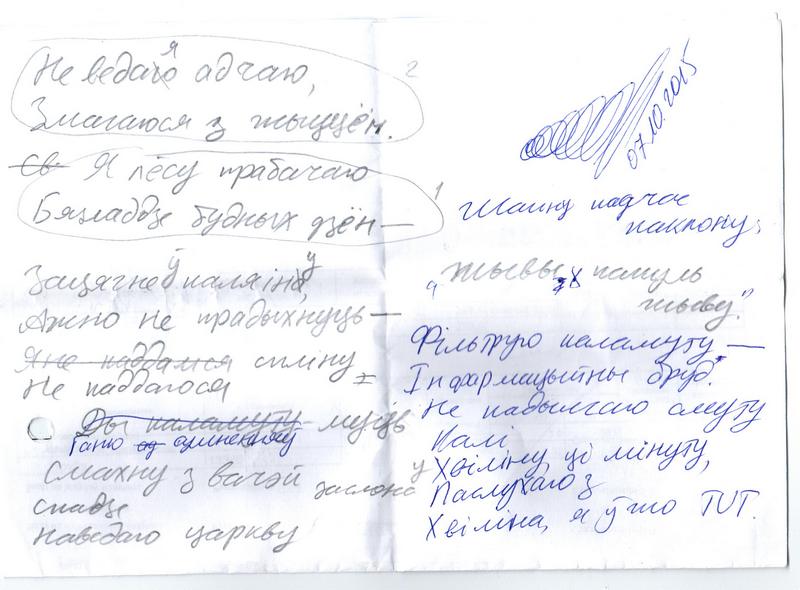 Не ведаю я адчаю, 2
Змагаюся з жыццём.
Св Я лёсу прабачаю 1
Бязладдзе будных дзён —
Зацягнеў каляіну,
Ажно не прадыхнуць —
Яне паддамся спліну
Не паддаюся
Ды каламуту
Ганю ад
Смахну з вачэй заслону
спадзе
Наведаю царкву
07.10.2015
падчас
паклону:
"Жывы пакуль
жыву".
Фільтрую каламуту —
Інфармацыйны бруд.
Не пабылгаю смуту
Калі
Хвіліну, ці мінуту,
Паслухаю з
Хвіліна, я ўжо ТУТ.